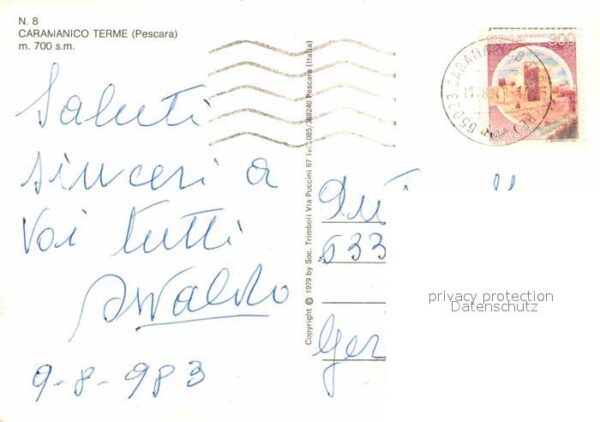 N. 8
CARAMANICO TERME (Pescara)
m. 700 s.m.
Saluti
sinceri a
voi tutti
9-8-983
Copyright © 1979 by Soc. Trimboli Via Puccini 67 Tel.
Pescara (Italia)
300
65023 CARAMANICO
533
Ger
privacy protection
Datenschutz